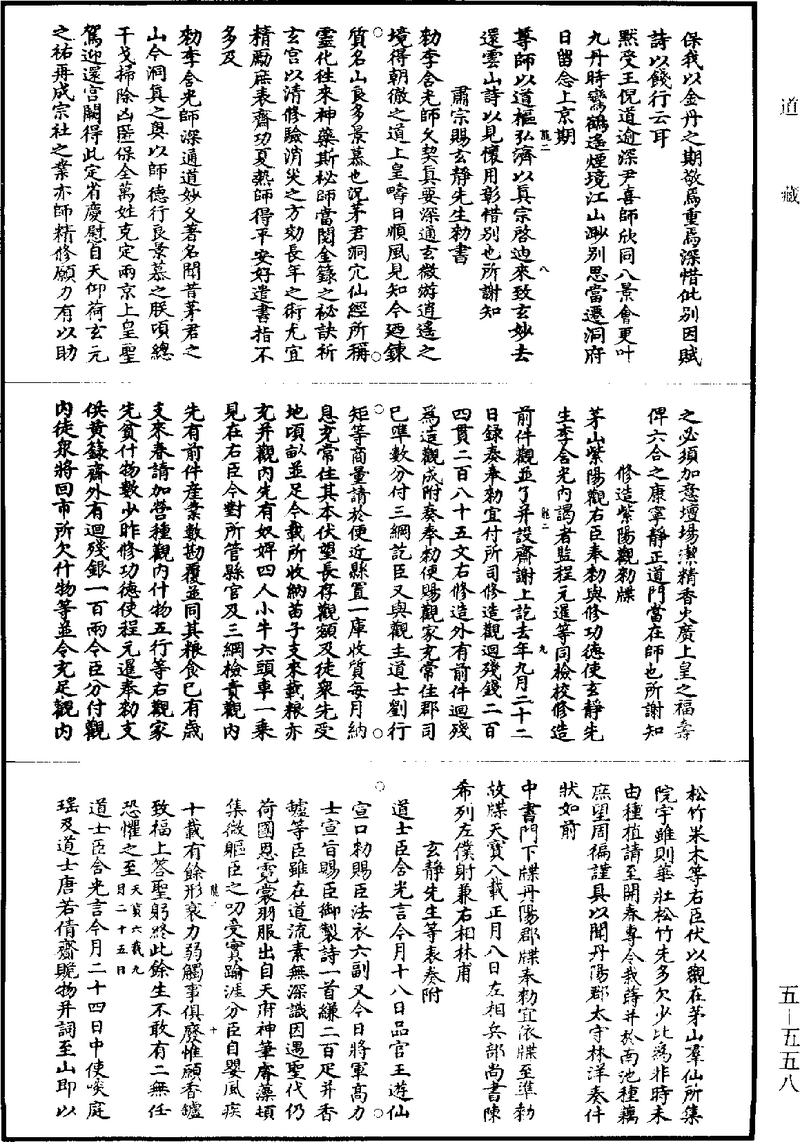 道藏
保我以金丹之期敬焉重焉深惜此别因賦
詩以餞行云耳
默受王倪道逾深尹喜師欣同八景會更叶
九丹時鸞鶴遙煙境江山渺别思當遷洞府
日留念上京期
尊師以道樞弘濟以真宗啓迪來致玄妙去
還雲山詩以見懷用彰惜别也所謝知
肅宗賜玄靜先生勑書
勑李含光師久契真要深通玄微游逍遙之
境得朝徹之道上皇疇日順風見知今廼鍊
質名山良多景慕也況茅君洞穴仙經所稱
靈化往來神藥斯秘師當閱金籙之祕訣祈
玄宫以清修驗消災之方効長年之術尤宜
精勵庶表齋功夏熱師得平安好遣書指不
多及
勑李含光師深通道妙久著名聞昔茅君之
山今洞真之奥以師德行良景慕之朕頃總
干戈掃除凶匿保全萬姓克定兩京上皇聖
駕迎還宫闕得此定省慶慰自天仰荷玄元
之祐再成宗社之業亦師精修願力有以助
之必須加意壇場潔精香火廣上皇之福壽
俾六合之康寧靜正道門當在師也所謝知
修造紫陽觀勑牒
茅山紫陽觀右臣奉勑與修功德使玄靜先
生李含光内謁者監程元暹等同檢校修造
前件觀並了并設齋謝上訖去年九月二十二
日録奏奉勑宜付所司修造觀迴殘錢二百
四貫二百八十五文右修造外有前件迴殘
爲造觀成附奏奉勑便賜觀家充常住郡司
已準數分付三綱訖臣又與觀主道士劉行
矩等商量請於便近縣置一庫收質每月納
息充常住其本伏望長存觀額及徒衆先受
地頃畝並足今載所收納苗子支來載粮亦
充并觀内先有奴婢四人小牛六頭車一乘
見在右臣今對所管縣官及三綱檢責觀内
先有前件産業數勘覆並同其粮食已有歲
支來春請加營種觀内什物五行等右觀家
先貧什物數少昨修功德使程元暹奉勑支
供黄籙齋外有迴殘銀一百兩今臣分付觀
内徒衆將回市所欠什物等並令充足觀内
松竹果木等右臣伏以觀在茅山羣仙所集
院宇雖則華壯松竹先多欠少比爲非時未
由種植請至開春專令栽蒔并於南池種藕
庶望周徧謹具以聞丹陽郡太守林洋奏件
狀如前
中書門下牒丹陽郡牒奉勑宜依牒至準勑
故牒天寶八載正月八日左相兵部尚書陳
希列左僕射兼右相林甫
玄靜先生等表奏附
道士臣含光言今月十八日品官王遊仙
宣口勑賜臣法衣六副又今日將軍高力
士宣旨賜臣御製詩一首縑二百疋并香
罏等臣雖在道流素無深識因遇聖代仍
荷國恩霓裳羽服出自天府神筆睿藻頃
集微軀臣之叨受實踰涯分臣自嬰風疾
十載有餘形衰力弱觸事俱廢惟願香罏
致福上答聖躬終此餘生不敢有二無任
恐懼之至天寶六載九月二十五日
道士臣含光言今月二十四日中使啖庭
瑤及道士唐若倩齋賜物并詞至山即以
五—五五八